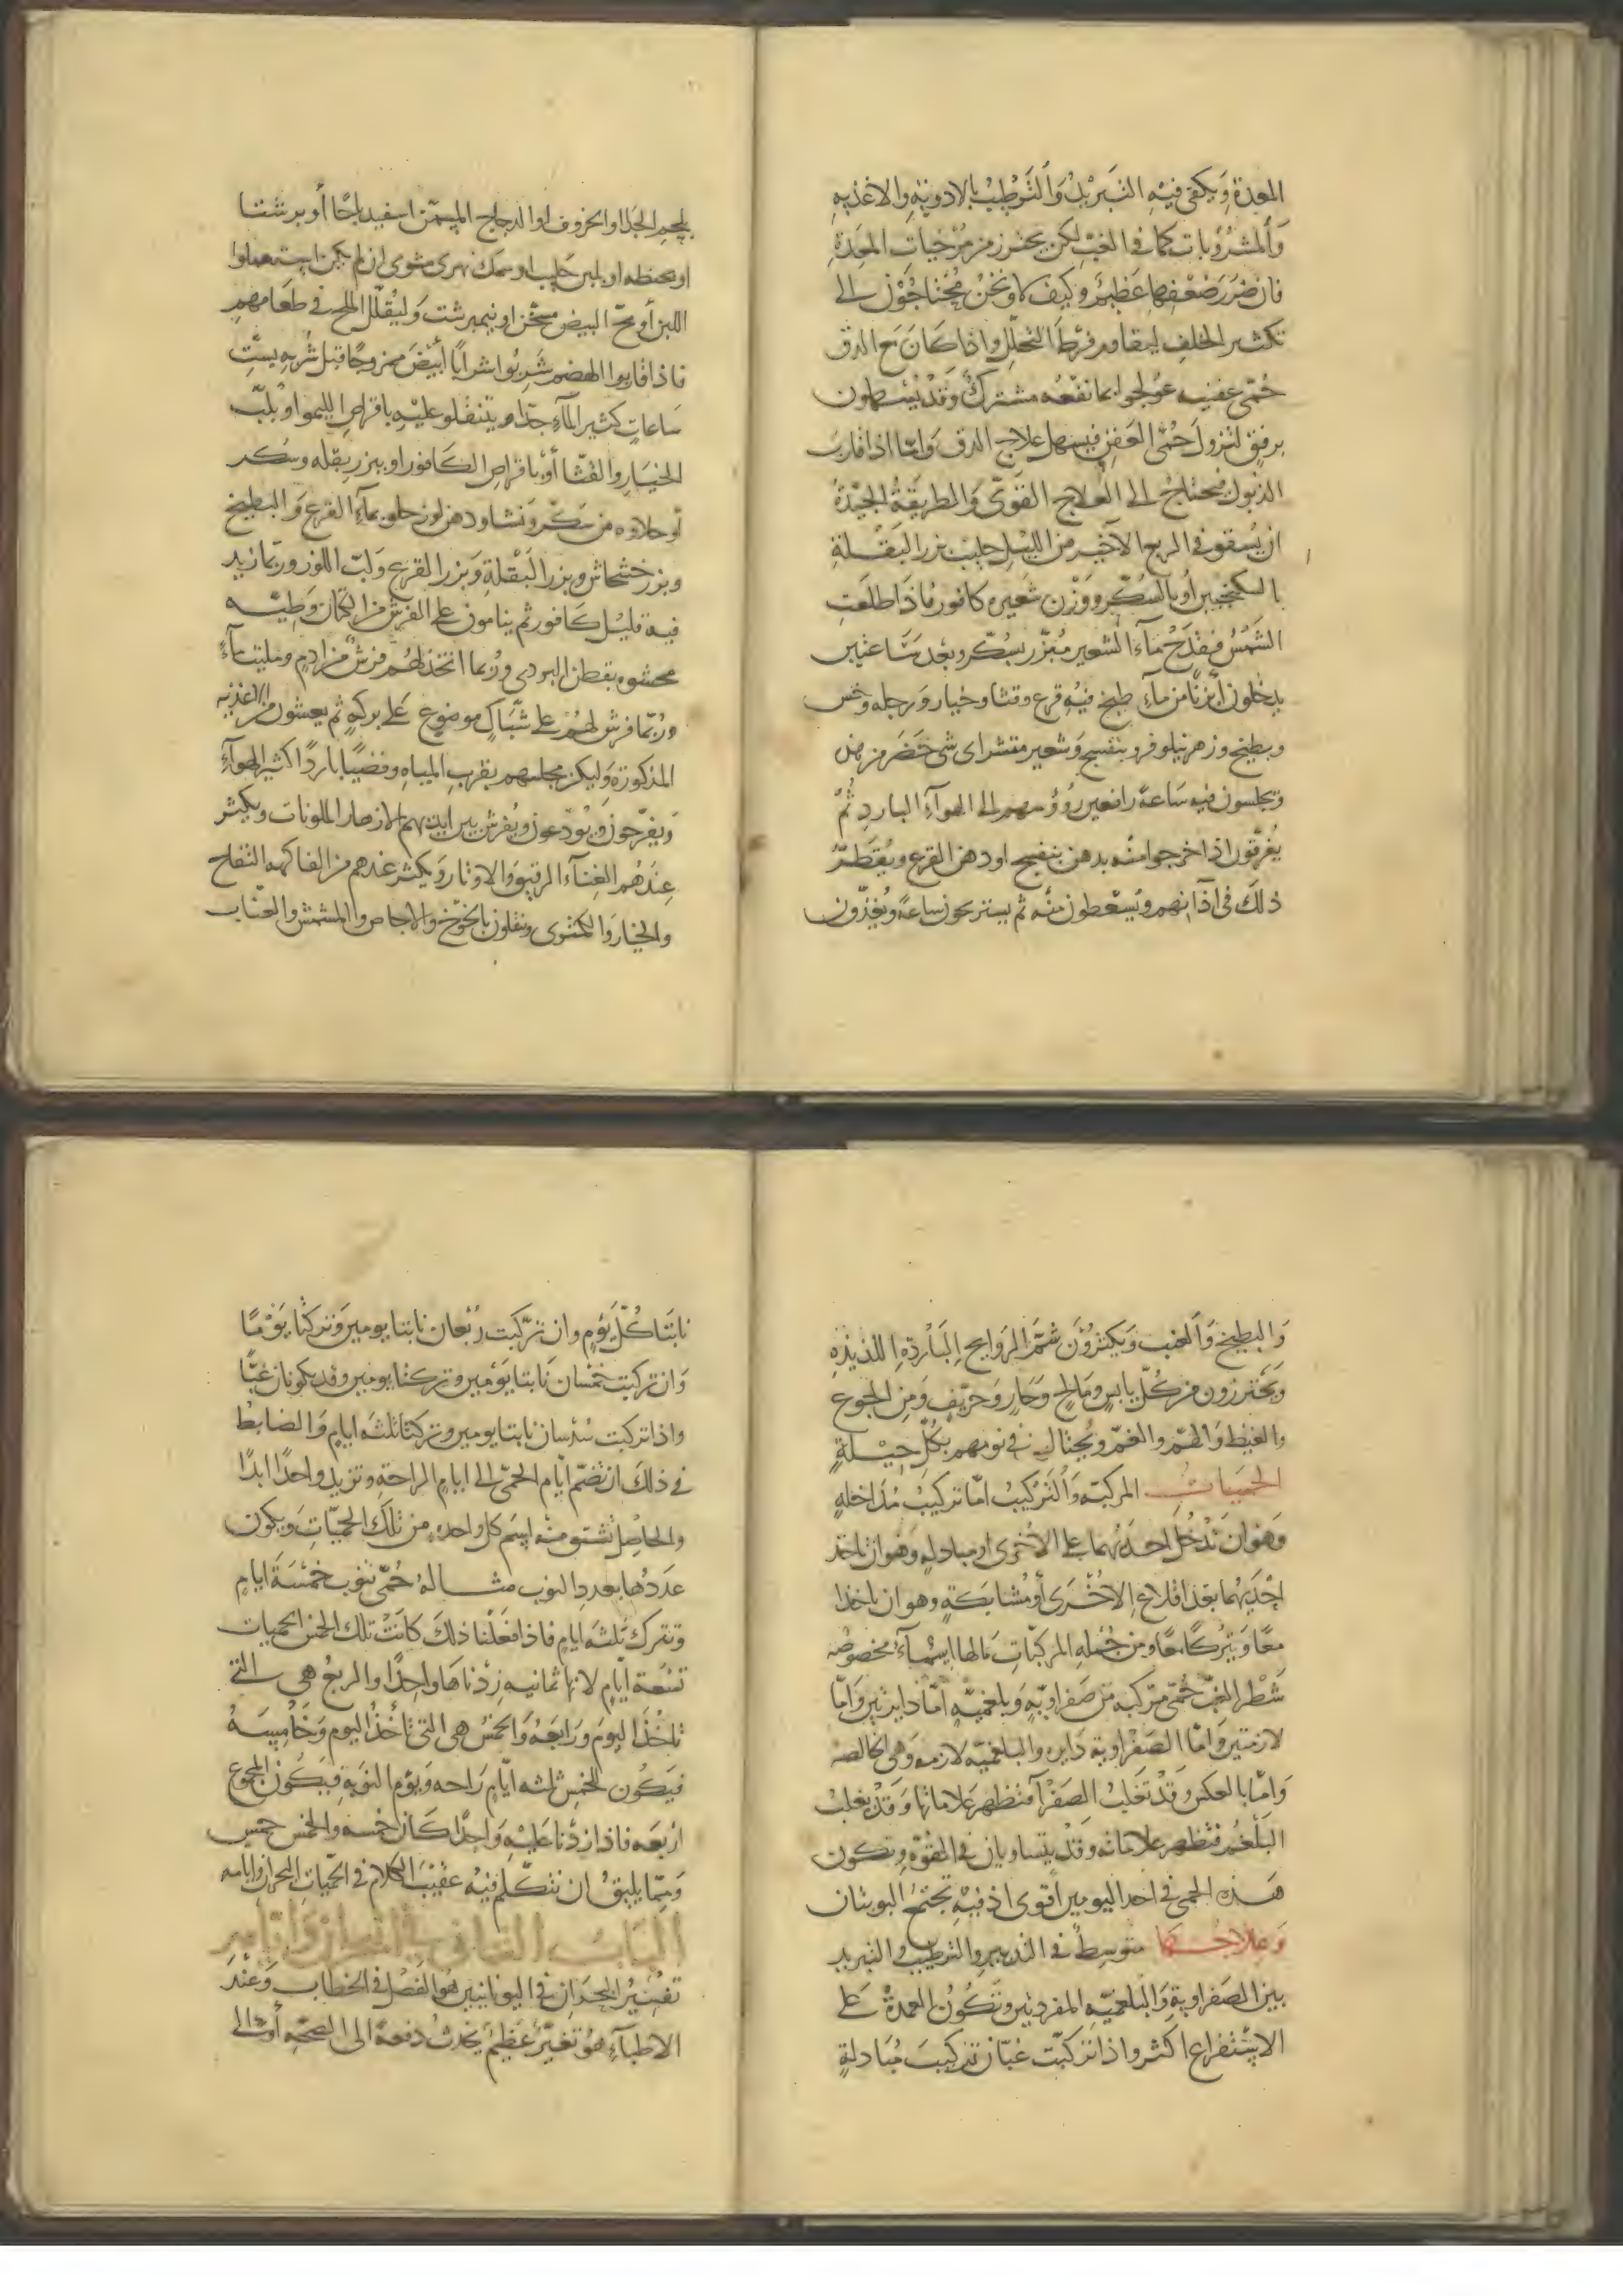 المعدة ويكفى فيه التبريد والترطيب بالادوية والاغذيه
وألمشروبات كما فى الغب لكن يحترز من مرخيات المعدة
فان ضرر ضعفها عظيم وكيف لا ونحن محتاجون الى
تكثير الخلف ليقاوم فرط التحلل واذا كان مع الدق
حمى عفنيه عولجوا بما نفعه مشترك وقد يسهلون
برفق لتزول حمى العفن فيسهل علاج الدق وامّا اذا قارب
الذبول فيحتاج الى العلاج القوىّ والطريقة الجيّدة
ان يسقو فى الربع الآخير من الليل حليب بزر البقلة
بالسكنجبين أو بالسكّر ووزن شعيره كافور فاذا طلعت
الشمس فقدح مآء الشعير مبزّر بسكّر وبعد ساعتين
يدخلون أبزنا من مآء طبخ فيه قرع وقثا وخيار ورجله وخس
وبطيخ وزهر نيلوفر وبنفسج وشعير مقشر اى شى حضر من هذه
ويجلسون فيه ساعة رافعين رؤوسهم الى الهوآء البارد ثم
يغرقون اذا خرجوا منه بدهن بنفسج او دهن القرع ويقطر
ذلك فى آذانهم ويسعطون منه ثم يستريحون ساعة ويغذّون
بلحم الجدا او الخروف او الدجاج المسمّن اسفيدباجًا أو برشتا
او بحنطه او بلبن حليب او سمك نهرى مشوى ان لم يكن استعملوا
اللبن أو مح البيض مسخّن او نيمبرشت وليقلّل الملح فى طعامهم
فاذا قاربوا الهضم شربوا شرابًا أبيض ممزوجًا قبل شربه بستّ
ساعات كثير المآء جدّا ويتنقلو عليه باقراص الليمو او بلبّ
الخيار والقثّا أو باقراص الكافور او ببزر بقله وسكر
أو حلاوه من سكر ونشا ودهن لوز حلو بمآء القرع والبطيخ
وبزر خشخاش وبزر البقلة وبزر القرع ولبّ اللوز وربّما زيد
فيه قليل كافور ثم ينامون على الفرش من الكتان وطيّه
محشوه بقطن البردى وربما اتخذ لهم فرش من ادم وملئت مآءً
وربّما فرش لهم على شبّاك موضوع على بركه ثم يعشون من الاغذيه
المذكورة وليكن مجلسهم بقرب المياه وفضيًا باردًا كثير الهوآء
ويفرّحون ويودّعون ويفرش بين ايديهم الازهار الملونات ويكثر
عندهم الغنآء الرقيق والاوتار ويكثر عندهم من الفاكهه التفاح
والخيار والكمثرى وينقلون بالخوخ والاجاص والمشمش والعنّاب
والبطيخ والعنب ويكثرون شمّ الروايح الباردة اللذيذه
ويحترزون من كلّ يابس ومالح وحار وحرّيف ومن الجوع
والغيظ والهمّ والغمّ ويحتال فى نومهم بكلّ حيلة
الحميات المركبّه والتركيب امّا تركيب مداخله
وهو ان تدخل احديهما على الاخرى او مبادله وهو ان تاخذ
احديهما بعد اقلاع الاخرى أو مشابكة وهو ان تاخذا
معًا ويتركا معًا ومن جمله المركّبات مالها اسمآء مخصوصه
شطر الغبّ حمّى مركبه من صفراويّه وبلغميّه امّا دايرتين وامّا
لازمتين وامّا الصفراوية دايره والبلغميّه لازمه وهى الخالصه
وامّا بالعكس وقد تغلب الصفرآ فتظهر علاماتها وقد يغلب
البلغم فتظهر علاماته وقد يتساويان فى القوّه وتكون
هذه الحمى فى احد اليومين أقوى اذ فيه تجتمع النوبتان
وعلاجها متوسط فى التدبير والترطيب والتبريد
بين الصفراوية والبلغميّه المفردتين وتكون العمدة على
الاستفراغ اكثر واذا تركبّت غبّان تركيب مبادلة
نابتا كلّ يوم وان تركّبت ربعان نابتا يومين وتركتا يومًا
وان تركبت خمسان نابتا يومين وتركتا يومين وقد يكونان غبّا
واذا تركبت سدسان نابتا يومين وتركتا ثلثه ايام والضابط
فى ذلك ان تضم أيام الحمّى الى ايام الراحة وتزيد واحدًا ابدًا
والحاصل تشتق منه اسم كل واحده من تلك الحميّات ويكون
عددها بعدد النوب مثاله حمّى تنوب خمسة ايام
وتترك ثلثه ايام فاذا فعلنا ذلك كانت تلك الخمس الحميات
تسعة ايّام لانها ثمانيه زدناها واحدًا والربع هى التى
تاخذ اليوم ورابعه والخمس هى التى تأخذ اليوم وخامسه
فيكون للخمس ثلثه ايّام راحه ويوم النوبة فيكون المجموع
اربعه فاذا زدنا عليه واحدًا كان خمسه والخمس خمس
وممّا يليق ان نتكلم فيه عقيب الكلام فى الحميّات البحران وايامه
الباب الثانى فى البحران وايّامه
تفسير البحران فى اليونانيين هو الفصل فى الخطاب وعند
الاطبآء هو تغيّر عظيم يحدث دفعة الى الصحّه أو الى